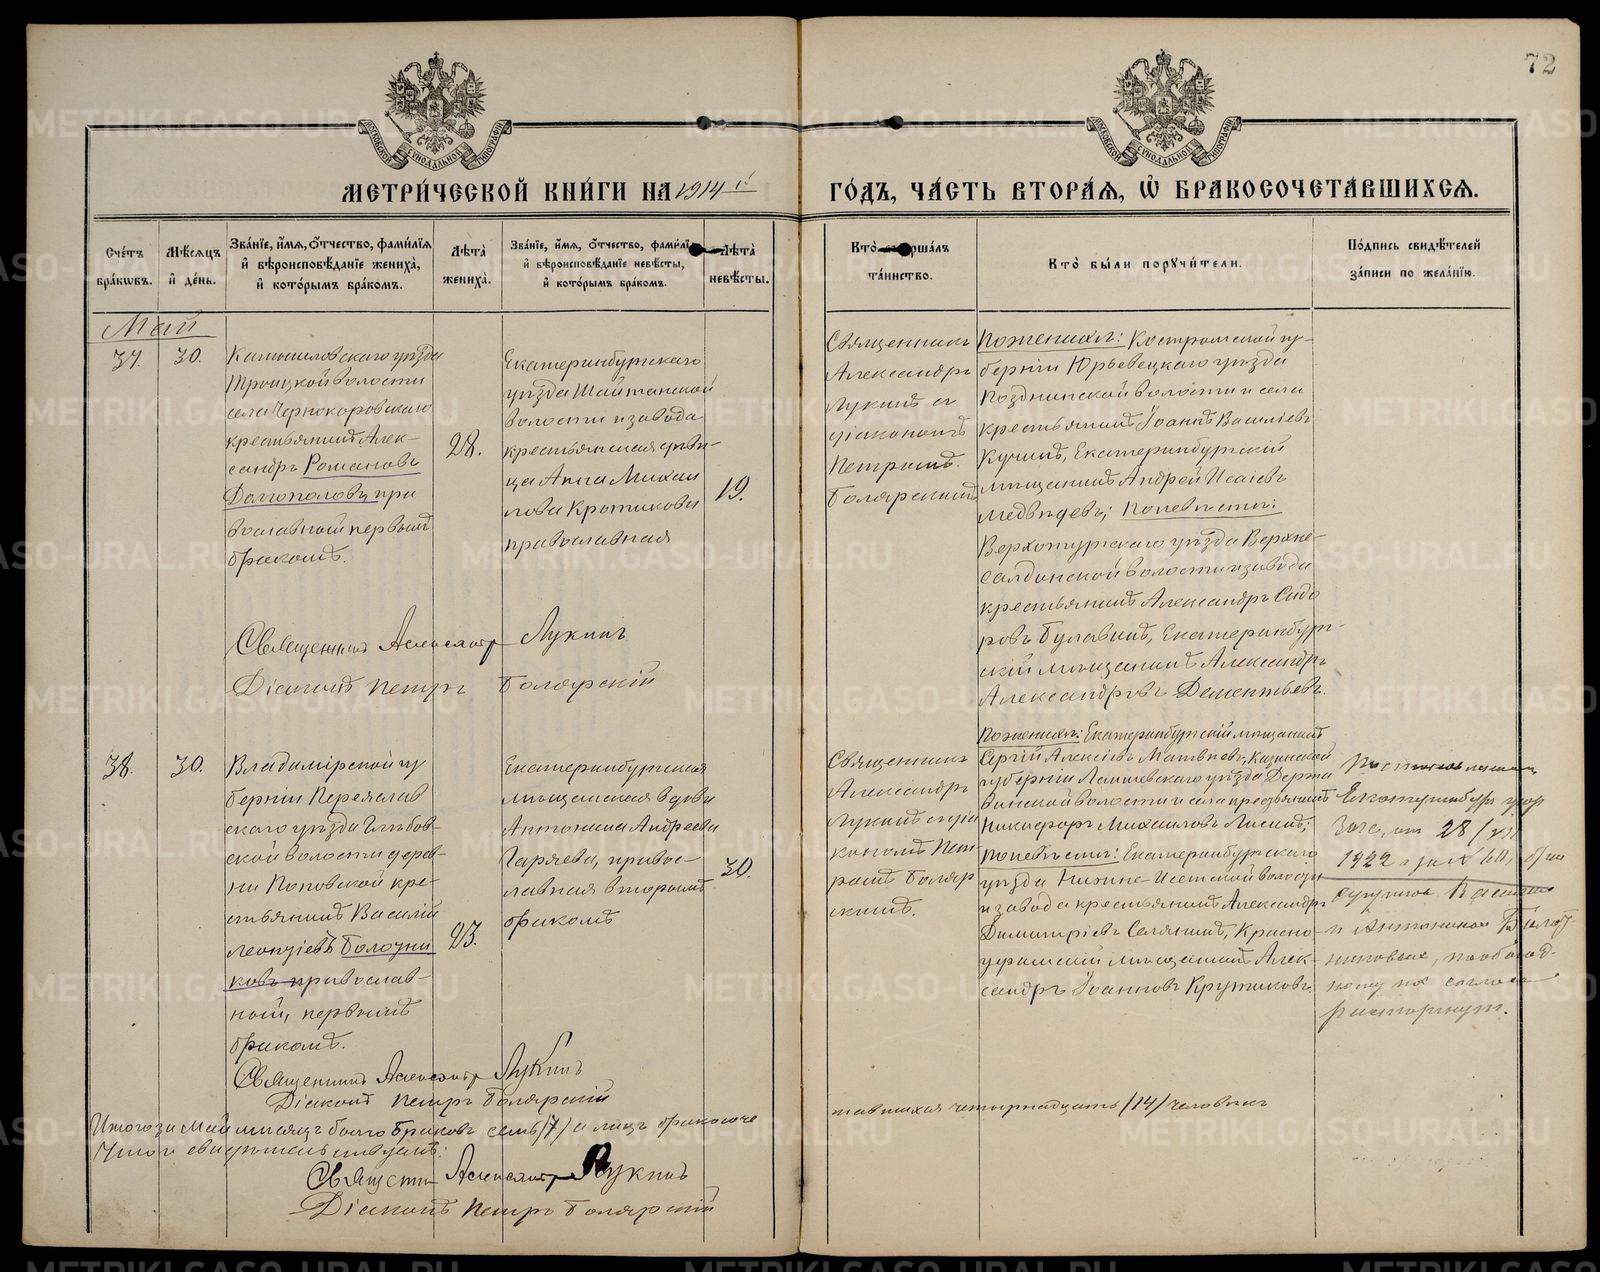 72
МОСКОВСКОЙ СѴНОДАЛЬНОЙ ТИПОГРАФІИ
МОСКОВСКОЙ СѴНОДАЛЬНОЙ ТИПОГРАФІИ
МЕТРИ́ЧЕСКОЙ КНИ́ГИ НА 1914 й
ГО́ДЪ, ЧА́СТЬ ВТОРА́Ѧ, Ѽ БРАКОСОЧЕТА́ВШИХСѦ.
Сче́тъ бра́кѡвъ.
Мѣ́сѧцъ и҆ де́нь.
Зва́нїе, и҆́мѧ, ѻ҆́тчество, фами́лїѧ
и҆ вѣроисповѣ́данїе жениха̀,
и҆ кото́рымъ бра́комъ.
Лѣта̀ жениха̀.
Зва́нїе, и҆́мѧ, ѻ҆́тчество, фами́лїѧ
и҆ вѣроисповѣ́данїе невѣ́сты,
и҆ кото́рымъ бра́комъ.
Лѣта̀ невѣ́сты.
Кто̀ соверша́лъ
та́инство.
Кто̀ бы́ли порꙋчи́тели.
По́дпись свидѣ́телей
за́писи по жела́нїю.
Май
37.
30.
Камышловскаго уѣзда
Троицкой волости
села Чернокоровскаго
крестьянинъ Алек-
сандръ Романовъ
Долгополовъ, пра
вославной первымъ
бракомъ.
28.
Екатеринбургскаго
уѣзда Шайтанской
волости и завода
крестьянская дѣви-
ца Анна Михаи
лова Кротикова
православная
19.
Священникъ
Александръ
Лукинъ съ
діакономъ
Петромъ
Болярскимъ
По женихѣ: Костромской гу-
берніи Юрьевецкаго уѣзда
волости и села
крестьянинъ Іоаннъ Васильевъ
Кучинъ, Екатеринбургскій
мѣщанинъ Андрей Исаіевъ
Медвѣдевъ; По невѣстѣ:
Верхотурскаго уѣзда Верхне-
салдинской волости и завода
крестьянинъ Александръ Сидо
ровъ Булавинъ, Екатеринбург-
скій мѣщанинъ Александръ
Александровъ Дементьевъ.
Священникъ Александръ Лукинъ
Діаконъ Петръ Болярскій
38.
30.
Владимірской гу
берніи Переяслав
скаго уѣзда Глѣбов-
ской волости дерев-
ни Поповской кре-
стьянинъ Василій
Леонтіевъ Болотни
ковъ православ-
ной, первымъ
бракомъ.
23.
Екатеринбургская
мѣщанская вдова
Антонина Андреева
Гаряева, правос-
лавная вторымъ
бракомъ
30.
Священникъ
Александръ
Лукинъ съ діа
кономъ Пет
ромъ Боляр
скимъ.
По женихѣ: Екатеринбургскій мѣщанинъ
Сергій Алексіевъ Матвѣевъ, Казанской
губерніи Лаишевскаго уѣзда Держа
винской волости и села крестьянинъ
Никифоръ Михаиловъ Лисинъ;
По невѣстѣ: Екатеринбургскаго
уѣзда Нижне-Исетской волости
и завода крестьянинъ Александръ
Димитріевъ Селянинъ, Красно-
уфимскій мѣщанинъ Алек-
сандръ Іоанновъ Крутиковъ.
Екатеринбург. гор
Загс, от 28/
1922 г за № 60,
супругов Васил
и Антонина Болот
никовые, по обоюд-
ному их соглас
расторгнут.
Священникъ Александръ Лукинъ
Діаконъ Петръ Болярскій
Итого за Май мѣсяцъ было браковъ семь /7/ а лицъ бракосоче
тавшихся четырнадцать /14/ человѣкъ
Что и свидѣтельствуемъ:
Священ Александръ Лукинъ
Діаконъ Петръ Болярскій
METRIKI.GASO-URAL.RU